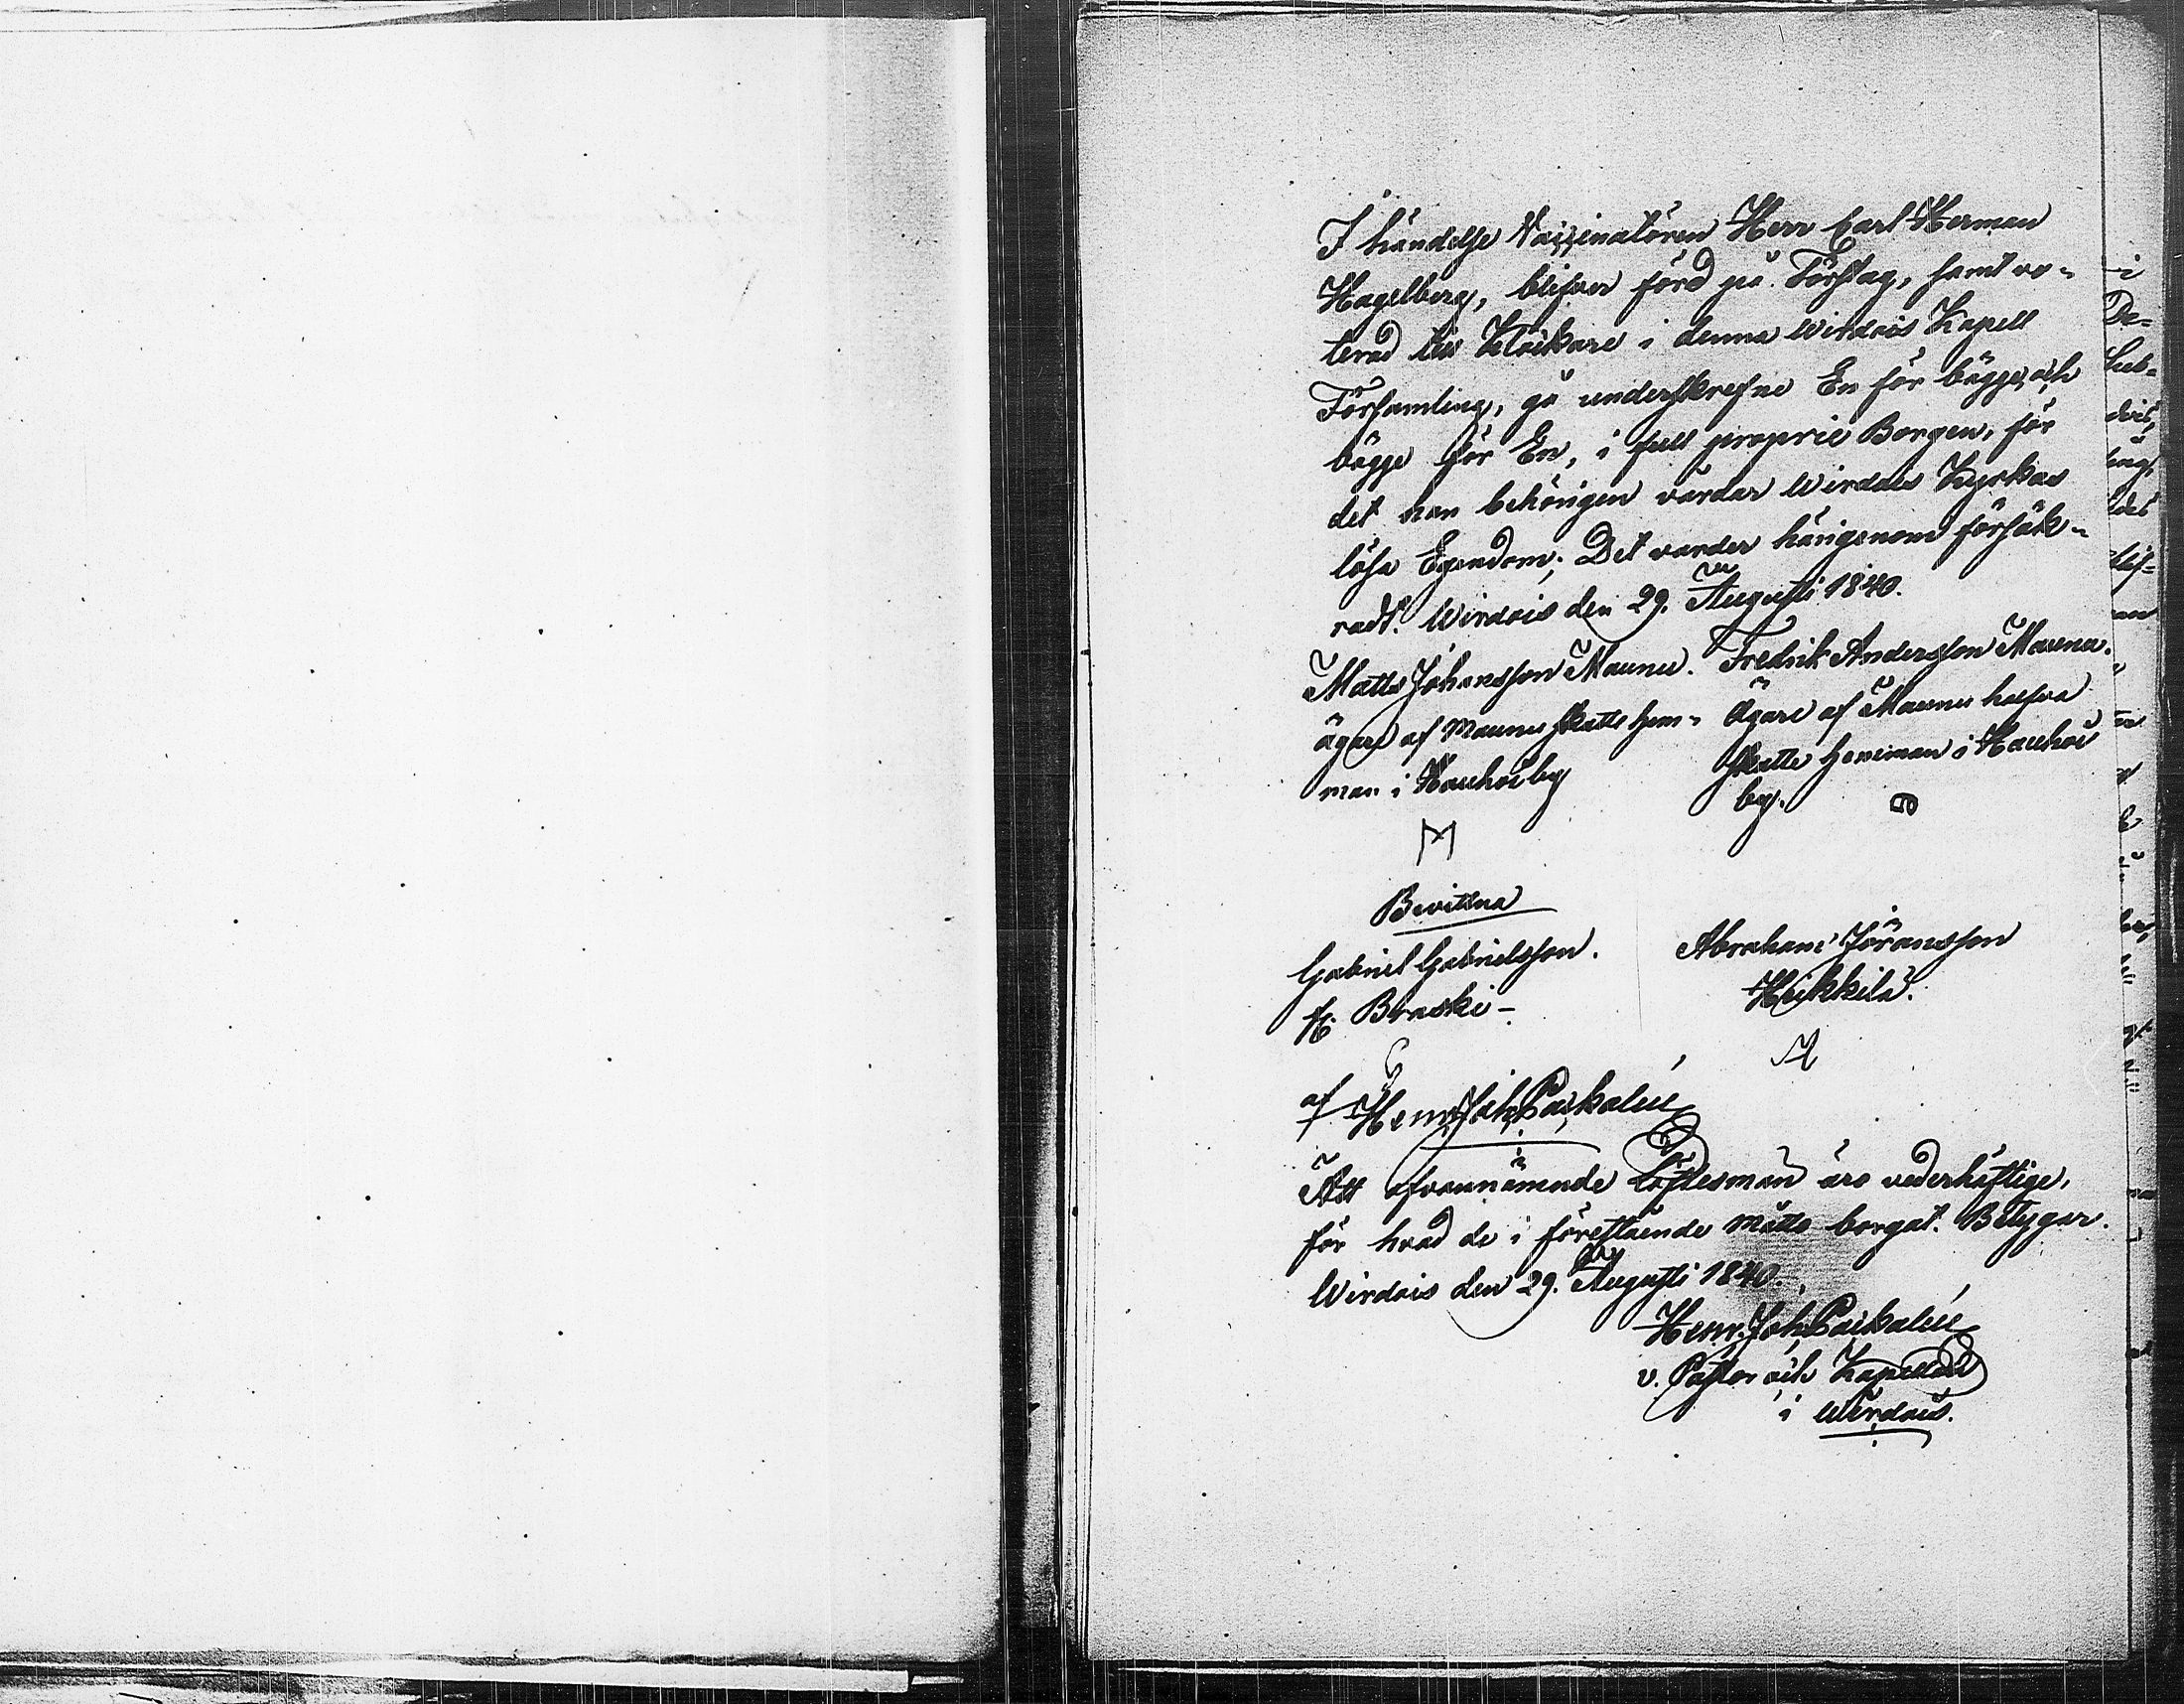 I händelse Vaccinatören Herr Carl Herman
Hagelberg, blifver förd på Förslag, samt vo-
terad till Klåckare i denna Wirdois Kapell
Församling, gå underskrefne En för bägge, och
bägge för En, i full proprie Borgen, för
det han behörigen vårdar Wirdois Kyrkas
lösa Egendom; Det varder härigenom försäk-
radt. Wirdois den 29. Augusti 1840.
Matts Johansson Maunu. Fredrik Andersson Maunu.
ägare af Maunu skatte hem- Ägare af Maunu halfva
man i Hauhois by skatte hemman i Hauhois
by.
M
Bevittna
Gabriel Gabrielsson. Abraham Jöransson
Braski Heikkilä.
af Henr. Joh. Paikalén
Att ofvannämnde Löftesmän äro vederhäftige,
för hvad de i förestående måtto borgat. Betygar.
Wirdois den 29. Augusti 1840.
Henr. Joh. Paikalén
v. Pastor och Kapellan
i Wirdois.